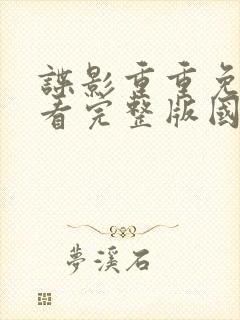 諜影重重免
看完整版國
夢溪石